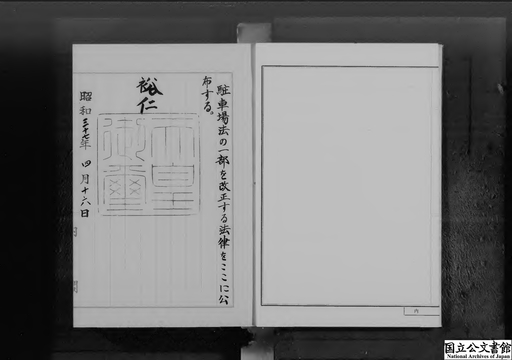 駐車場法の一部を改正する法律をここに公
布する。
裕仁
天皇
御璽
昭和三十七年四月十六日
内
国立公文書館
National Archives of Japan